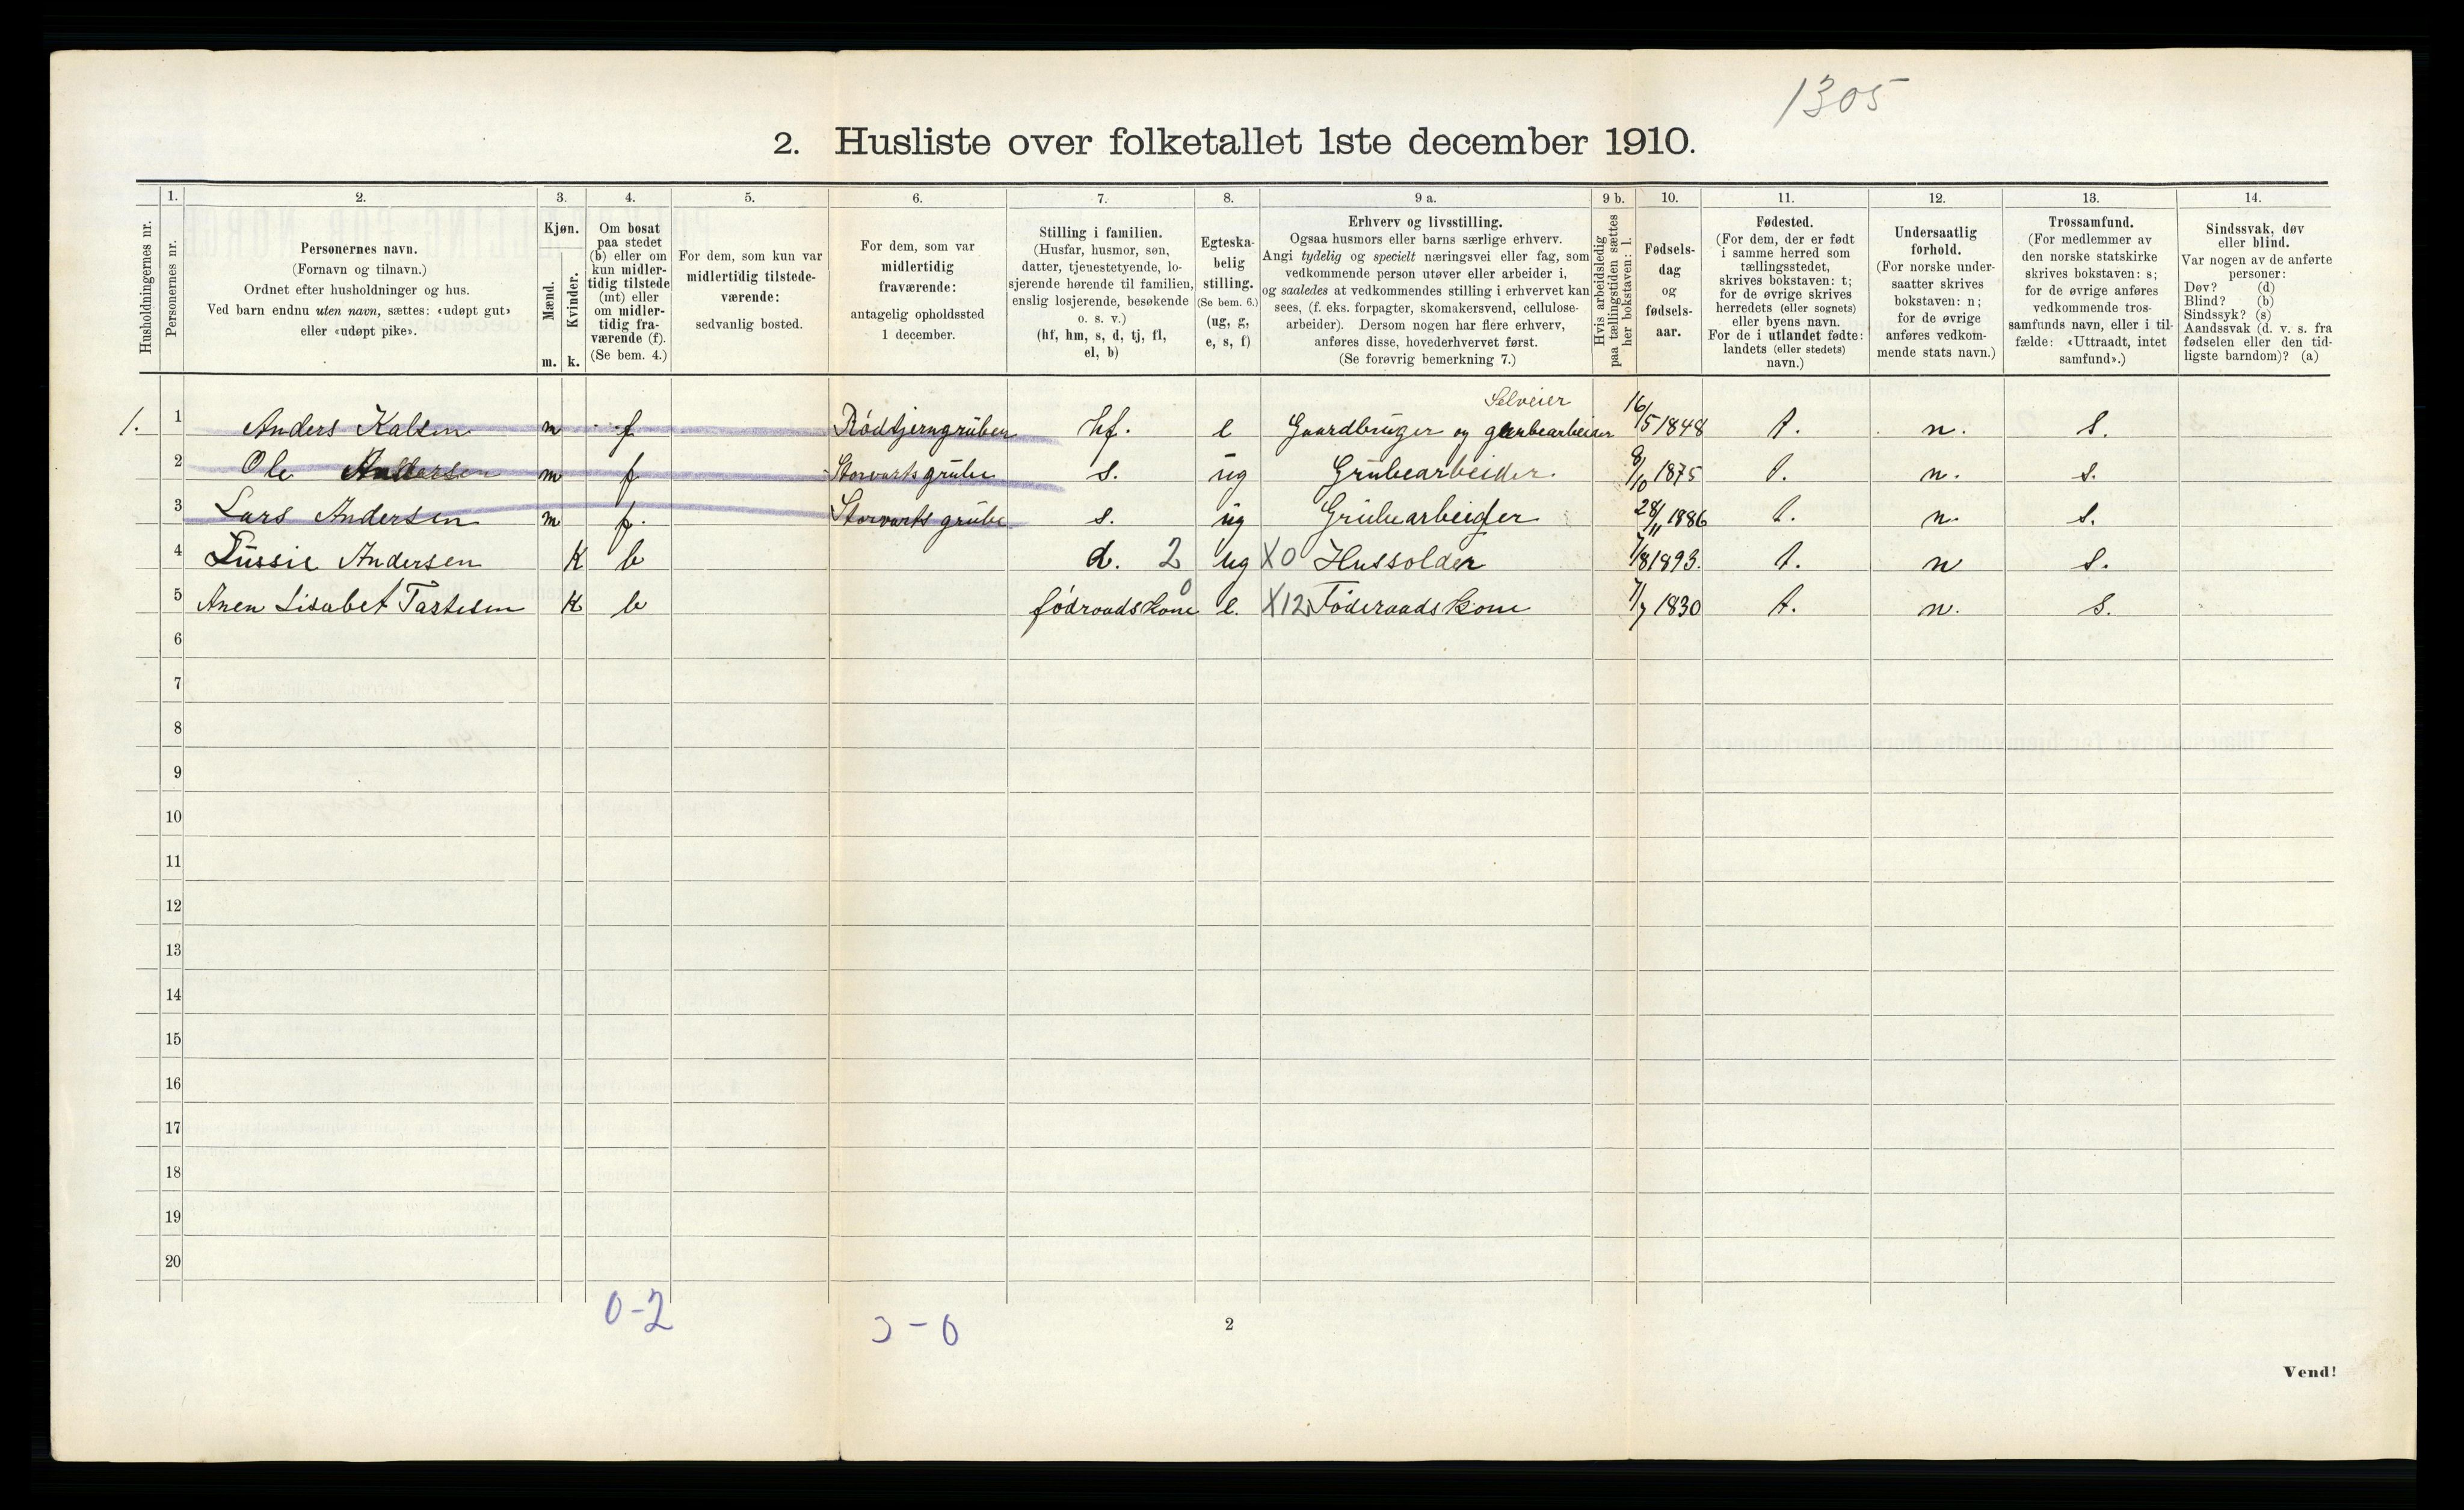 1305
2. Husliste over folketallet 1ste december 1910.
Husholdningernes nr.
1.
Personernes nr.
2.
Personernes navn.
(Fornavn og tilnavn.)
Ordnet efter husholdninger og hus.
Ved barn endnu uten navn, sættes: «udøpt gut»
eller «udøpt pike».
3.
Kjøn.
Mænd.
Kvinder.
m. k.
4.
Om bosat
paa stedet
(b) eller om
kun midler-
tidig tilstede
(mt) eller
om midler-
tidig fra-
værende (f).
(Se bem. 4.)
5.
For dem, som kun var
midlertidig tilstede-
værende:
sedvanlig bosted.
6.
For dem, som var
midlertidig
fraværende:
antagelig opholdssted
1 december.
7.
Stilling i familien.
(Husfar, husmor, søn,
datter, tjenestetyende, lo-
sjerende hørende til familien,
enslig losjerende, besøkende
o. s. v.)
(hf, hm, s, d, tj, fl,
el, b)
8.
Egteska-
belig
stilling.
(Se bem. 6.)
(ug, g,
e, s, f)
9 a.
Erhverv og livsstilling.
Ogsaa husmors eller barns særlige erhverv.
Angi tydelig og specielt næringsvei eller fag, som
vedkommende person utøver eller arbeider i,
og saaledes at vedkommendes stilling i erhvervet kan
sees, (f. eks. forpagter, skomakersvend, cellulose-
arbeider). Dersom nogen har flere erhverv,
anføres disse, hovederhvervet først.
(Se forøvrig bemerkning 7.)
9 b.
Hvis arbeidsledig
paa tællingstiden sættes
her bokstaven: l.
10.
Fødsels-
dag
og
fødsels-
aar.
11.
Fødested.
(For dem, der er født
i samme herred som
tællingsstedet,
skrives bokstaven: t;
for de øvrige skrives
herredets (eller sognets)
eller byens navn.
For de i utlandet fødte:
landets (eller stedets)
navn.)
12.
Undersaatlig
forhold.
(For norske under-
saatter skrives
bokstaven: n;
for de øvrige
anføres vedkom-
mende stats navn.)
13.
Trossamfund.
(For medlemmer av
den norske statskirke
skrives bokstaven: s;
for de øvrige anføres
vedkommende tros-
samfunds navn, eller i til-
fælde: «Uttraadt, intet
samfund».)
14.
Sindssvak, døv
eller blind.
Var nogen av de anførte
personer:
Døv? (d)
Blind? (b)
Sindssyk? (s)
Aandssvak (d. v. s. fra
fødselen eller den tid-
ligste barndom)? (a)
Selveier
1. 1 Anders Kalsen m f Rödtjerngruben hf. e Gaardbruger og grubearbeider 16/5 1848 t. n. s.
2 Ole Andersen m f Storvartsgrube s. ug Grubearbeider. 8/10 1875 t. n. s.
3 Lars Andersen m f. Storvarts grube s. ug Grubearbeider 28/11 1886 t. n. s.
4 Lussie Andersen K b d. 2 ug X0 Hussolder 7/8 1893. t. n s.
5 Anen Lisabet Tastesen K b födraadskone 0 e. X12 Föderaadskone 7/7 1830 t. n. s.
6
7
8
9
10
11
12
13
14
15
16
17
18
19
20
0-2
3-0
2
Vend!